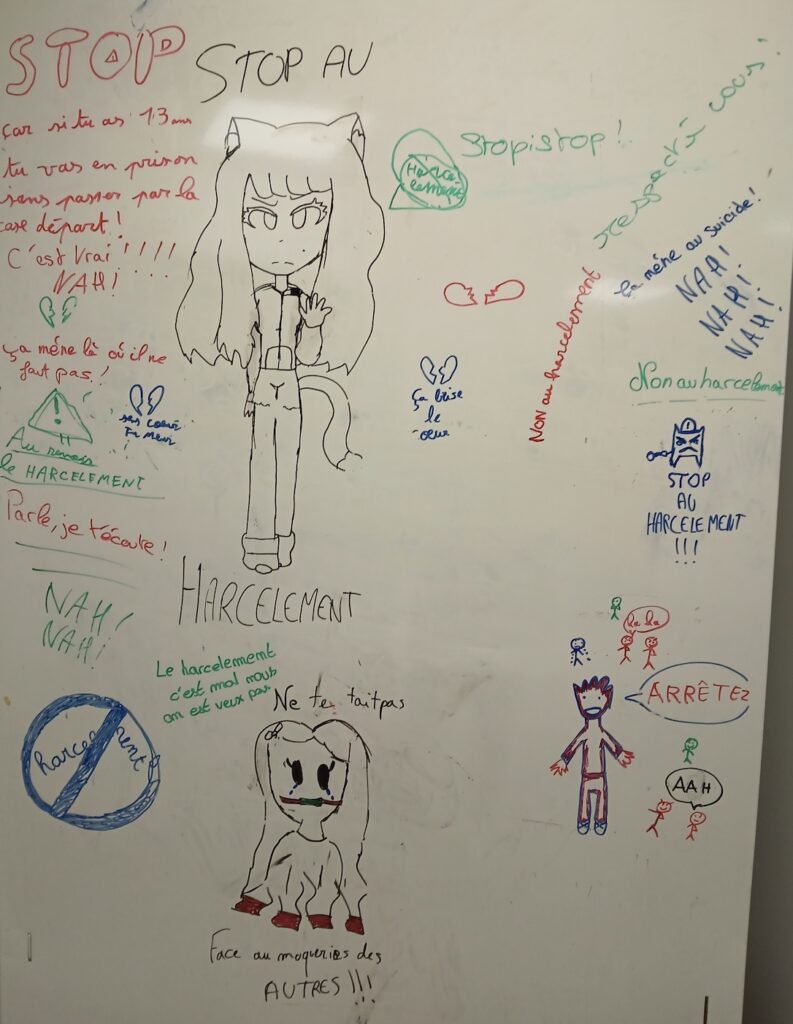 STOP
car si tu as 13 ans
tu vas en prison
sans passer par la
case départ !
C'est vrai !!!!!
NAH !
ça mène là où il ne
faut pas !
!
ses coeur
Au revoir
le HARCELEMENT
Parle, je t'écoute !
NAH !
NAH !
harcelement
STOP AU
HARCELEMENT
Le harcelement
c'est mal nous
on est veux pas
Ne te tait pas
Face au moqueries des
AUTRES !!!
Harcelement
Stop stop !
ça brise
le
coeur
NON au harcelement
respecté vous !
ça mène au suicide !
NAH !
NAH !
NAH !
Non au harcelement
STOP
AU
HARCELEMENT
!!!
ha ha
ARRÊTEZ
AAH